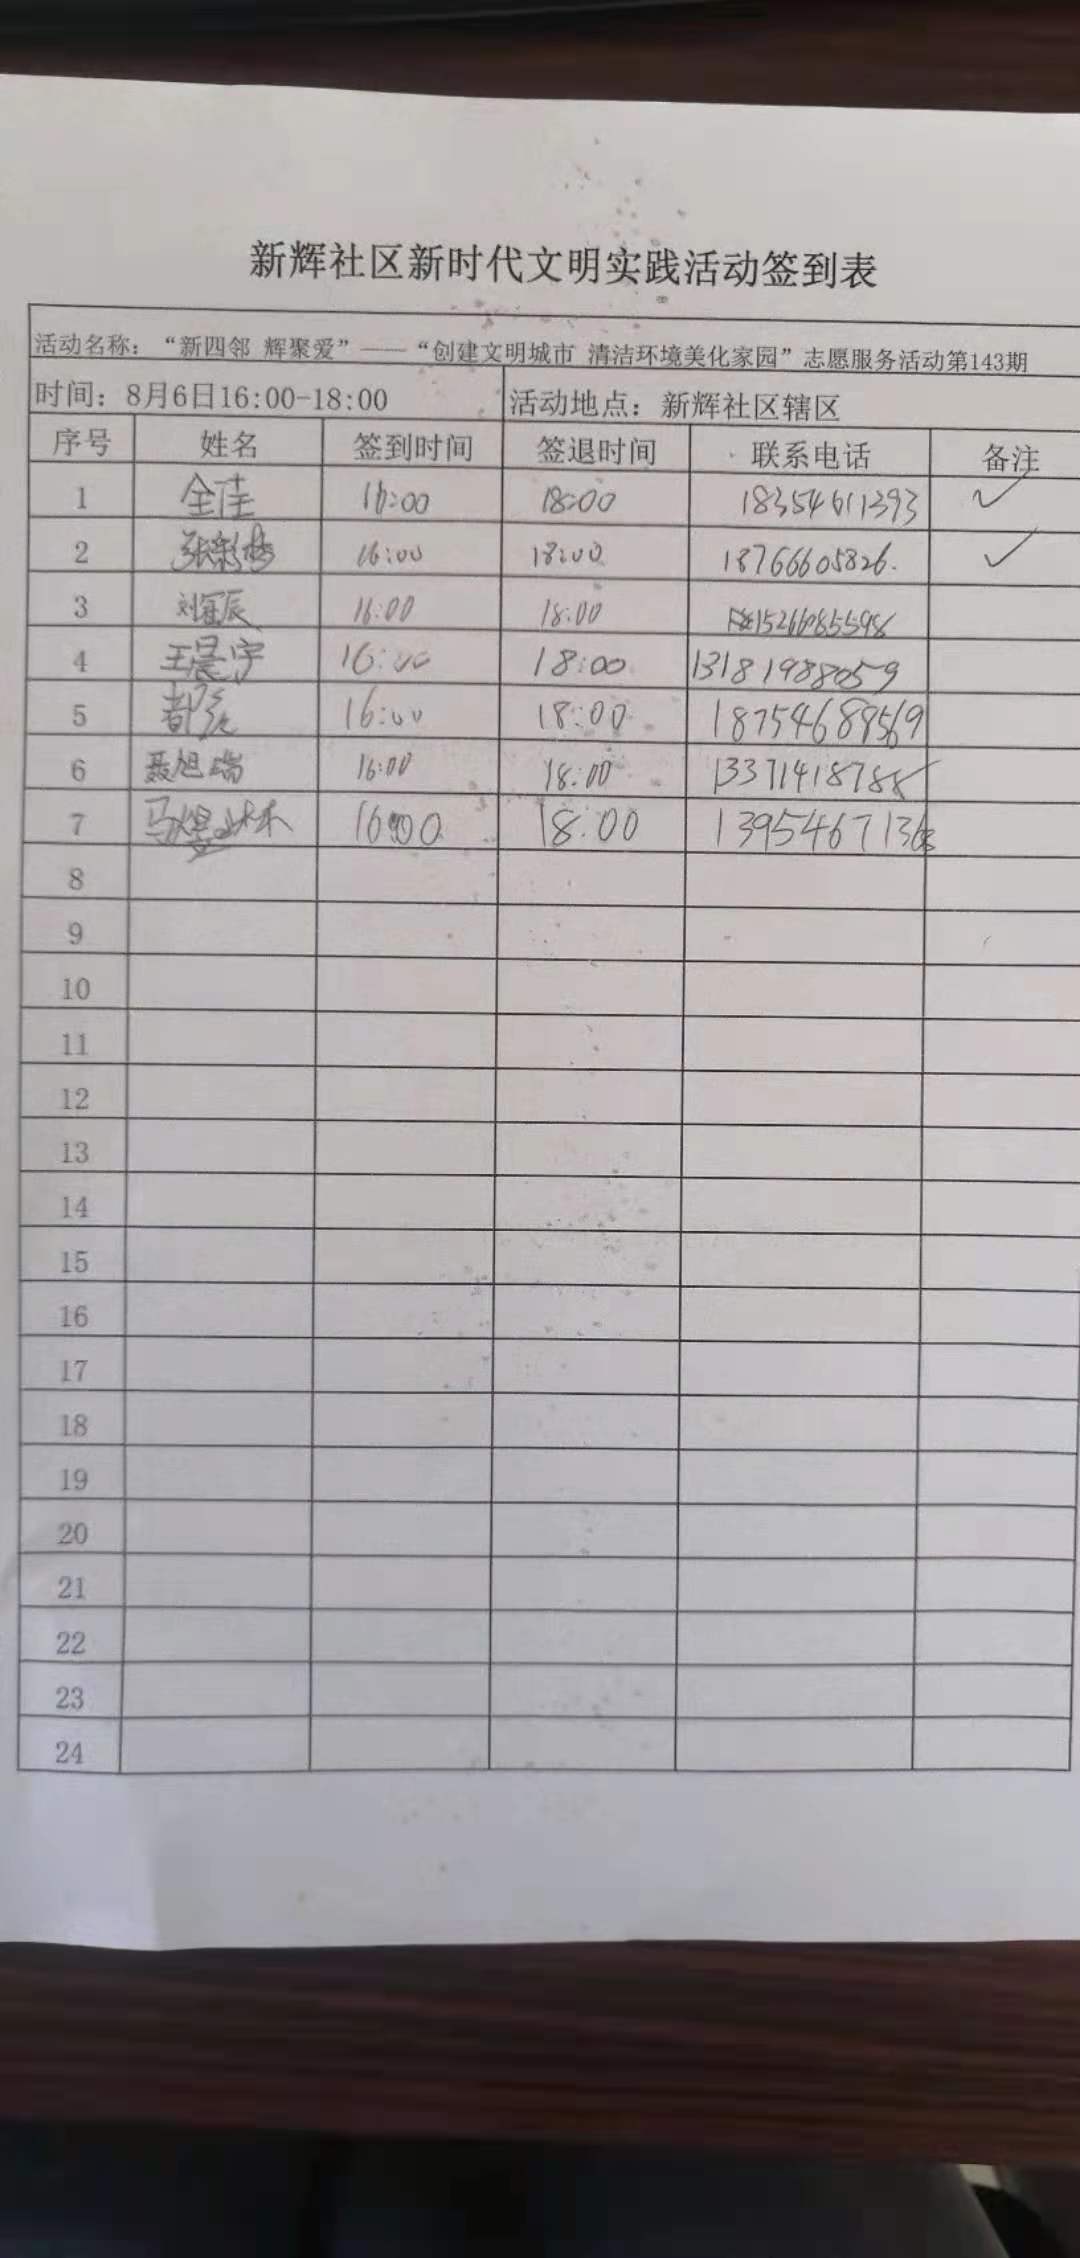 新辉社区新时代文明实践活动签到表
活动名称：“新四邻 辉聚爱”——“创建文明城市 清洁环境美化家园”志愿服务活动第143期
时间：8月6日16:00-18:00 活动地点：新辉社区辖区
序号 姓名 签到时间 签退时间 联系电话 备注
1 全佳 16:00 18:00 18354611393 ✓
2 张彩梅 16:00 18:00 18766605826. ✓
3 刘宸 16:00 18:00
4 王晨宇 16:00 18:00 13181988059
5 16:00 18:00 18754689569
6 聂旭瑞 16:00 18:00 13371418788
7 马煜 16:00 18:00
8
9
10
11
12
13
14
15
16
17
18
19
20
21
22
23
24